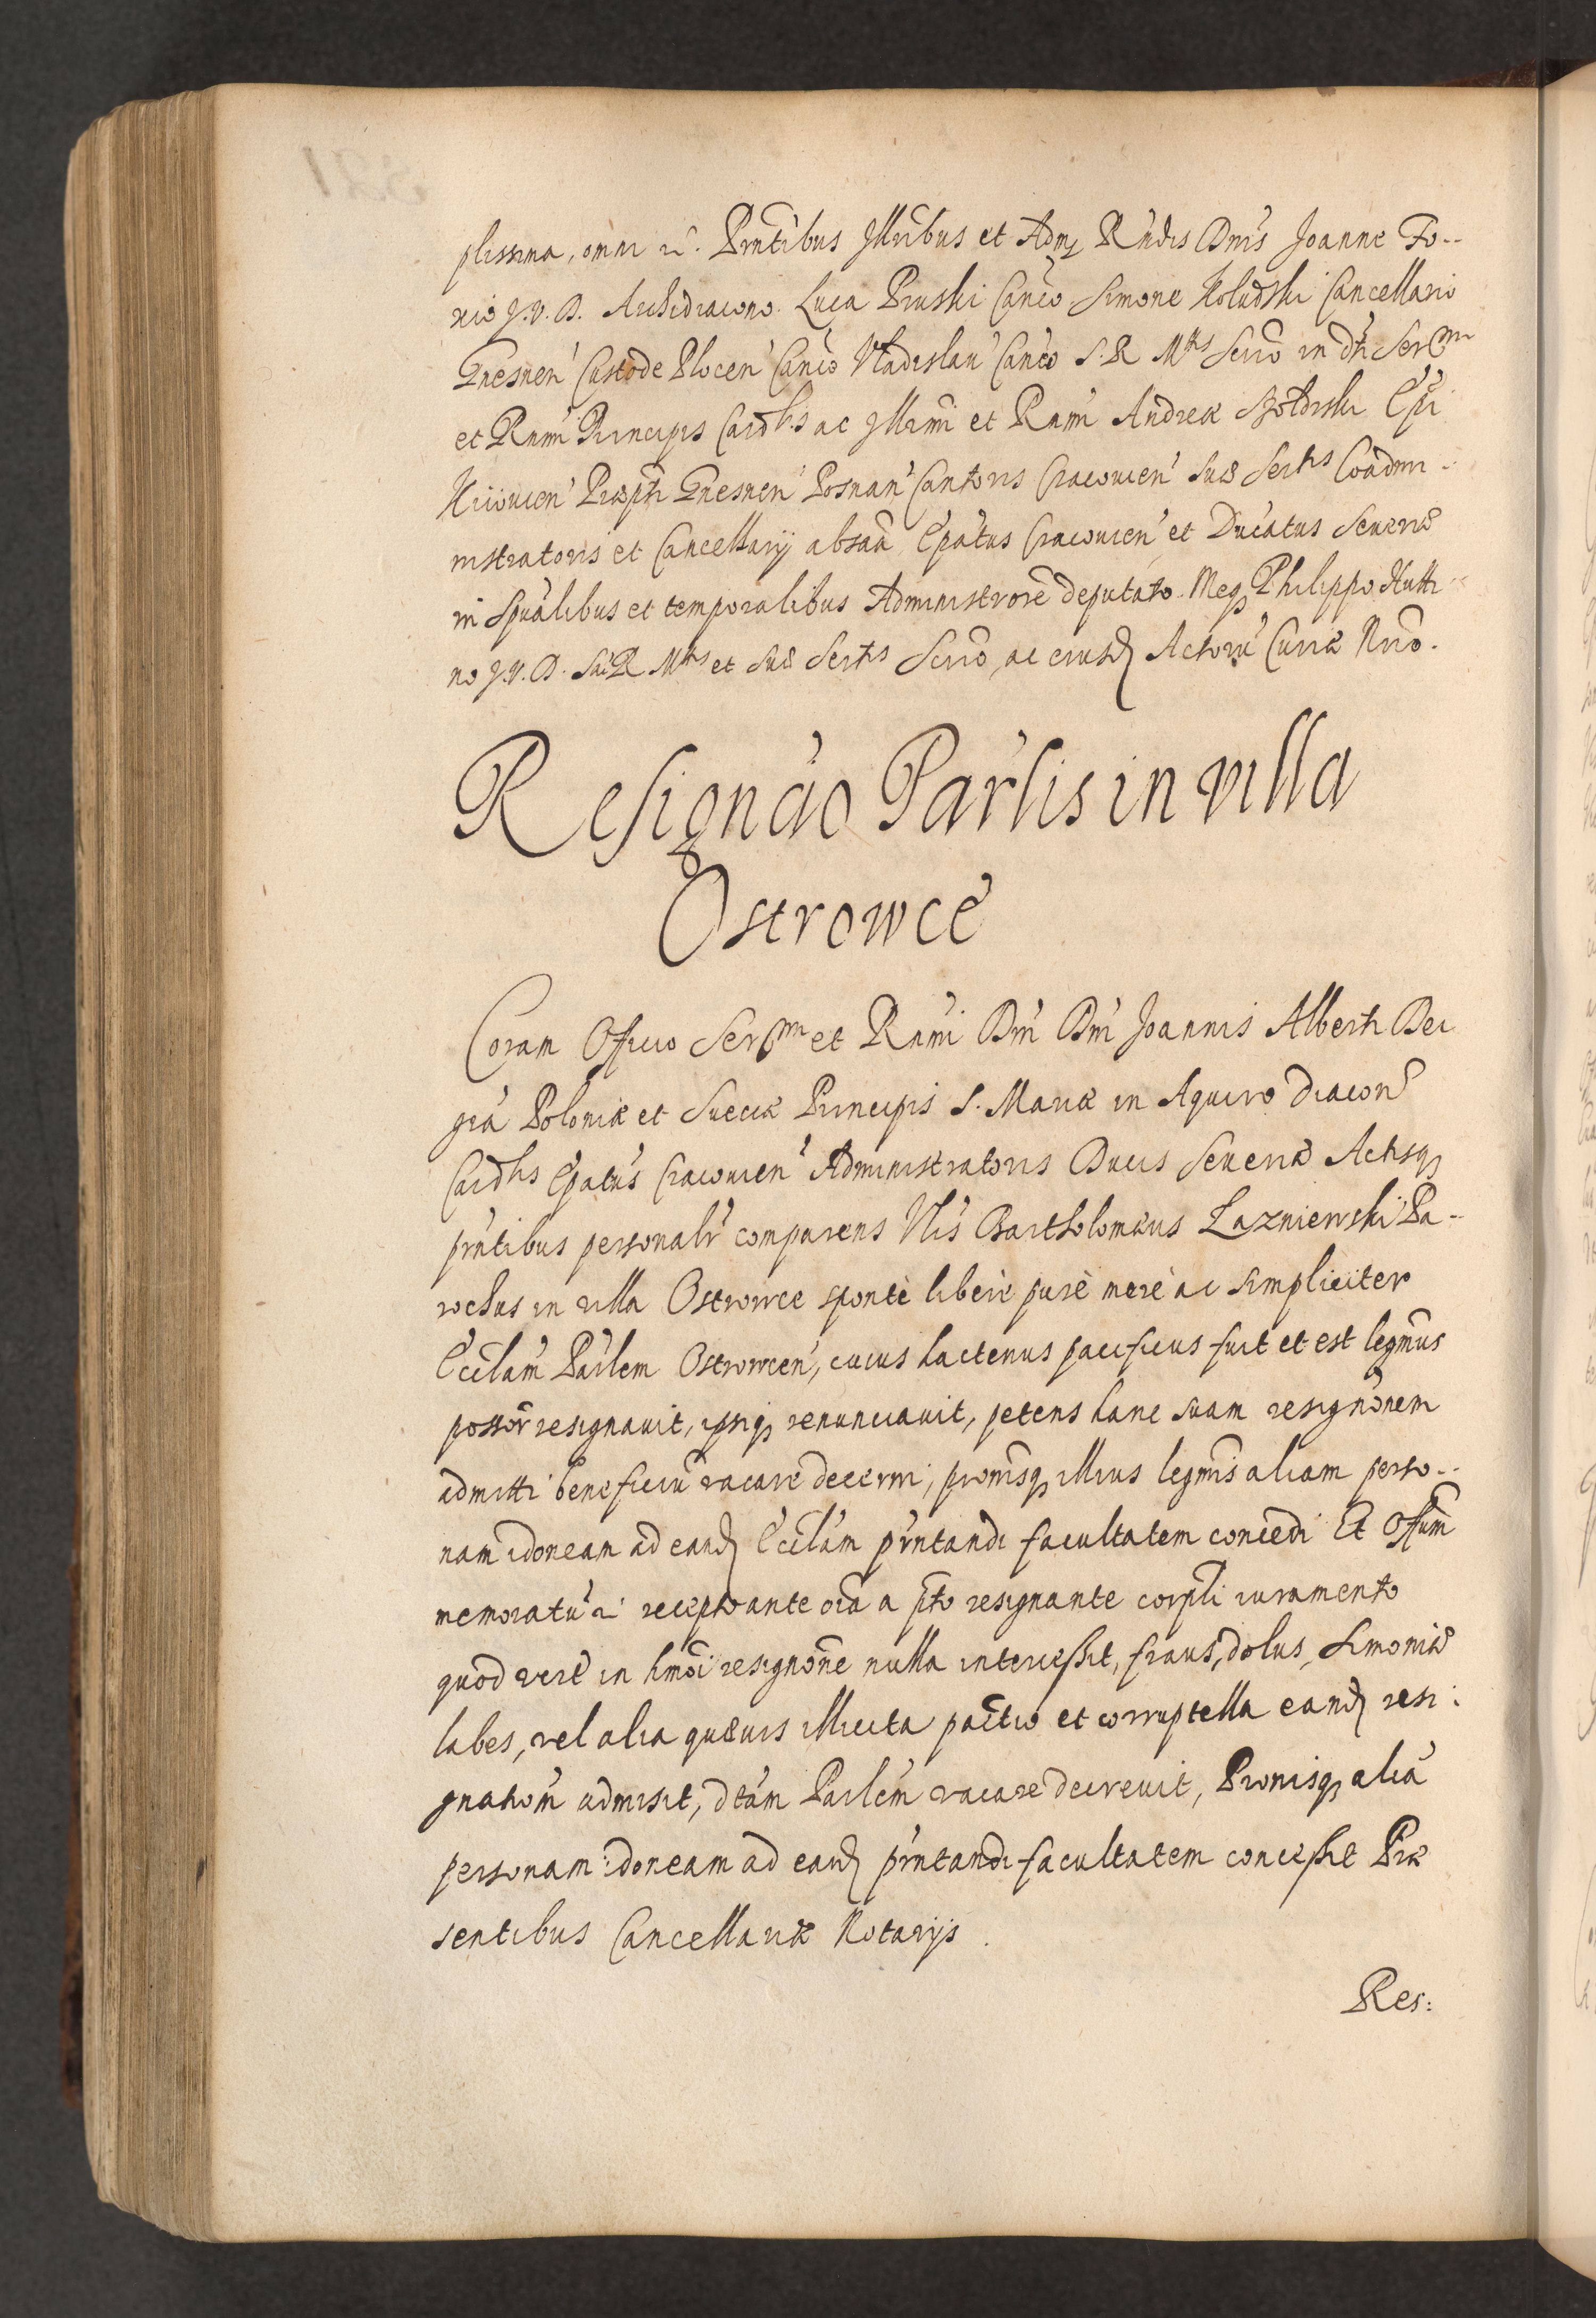 plissima, omni r̃. Prñtibus Jllribus et Adm̃ Rñdis Dn̄is Joanne Fo--
xio J.V.D. Archidiacono. Luca Pruski Canc̃o Simone Koludzki Cancellario
Gnesnen̄ Custode Plocen̄ Canc̃o Vladislau̇ Canc̃o S.R Mtis Scrio in dt̄i Serm̄i
et Rnm̄i Principis Cardlis ac Jllrm̄i et Rnm̄i Andreæ Szołdrski Ep̄i
Kiiouien̄ Præpti Gnesnen̄ Posnan̄ Cantoris Cracouien̄ Suæ Sertis Coadmi-
nistratoris et Cancellarij absãa Ep̄atus Cracouien̄ et Ducatus Seueriæ
in Spũalibus et temporalibus Administrorē deputato. Meq3 Philippo Hutti-
no J.V.D. Sac̄R Mtis et Suæ Sertis Scrio, ac eiusd̃ Actorũ Curiæ Nrio.
Resignãо Parlis in villa
Ostrowce
Coram Officio Serm̄i et Rnm̄i Dn̄i Dn̄i Joannis Alberti Dei
grã Poloniæ et Sueciæ Principis S. Mariæ in Aquiro Diacon̄
Cardlis Ep̄atus Cracouien̄ Administratoris Ducis Seueriæ Actisq3
prñtibus personalr̄ comparens Vlis Bartholomæus Łazniewski Pa-
rochus in villa Ostrowce spontè liberè purè merè ac simpliciter
Ecclãm Parlem Ostrowcen̄, cuius hactenus pacificus fuit et est legmũs
possōr resignauit, ipsiq3 renunciauit, petens hanc suam resignõnem
admitti beneficiũ vacare decerni, pronisq3 illius legmĩs aliam perso--
nam idoneam ad eand̃ Ecclãm prñtandi facultatem concedi Et Offũm
memoratũ r̃ recepto ante oĩa a p̃to resignante corpli iuramento
quod vere in hmõi resignõne nulla intercessit, fraus, dolus, Simoniæ
labes, vel alia quæuis illicita pactio et corruptella eand̃ resi:
gnatiom̄ admisit, dtãm Parlem̄ vacare decreuit, Pronisq3 aliã
personam idoneam ad eand̃ prñtandi facultatem concessit Præ
sentibus Cancellariæ Notarijs.
Res: